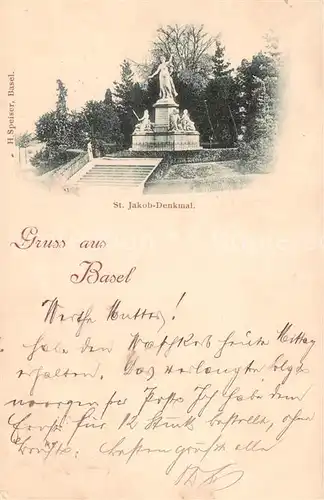 H. Speiser, Basel.
St. Jakob-Denkmal.
Gruss aus
Basel
Werthe Mutter!
habe den Waschkorb heute Mittag
erhalten. Das verlangte folgt
morgen per Post. Ich habe dem
für 12 Stück bestellt, ohne
grüsst alle